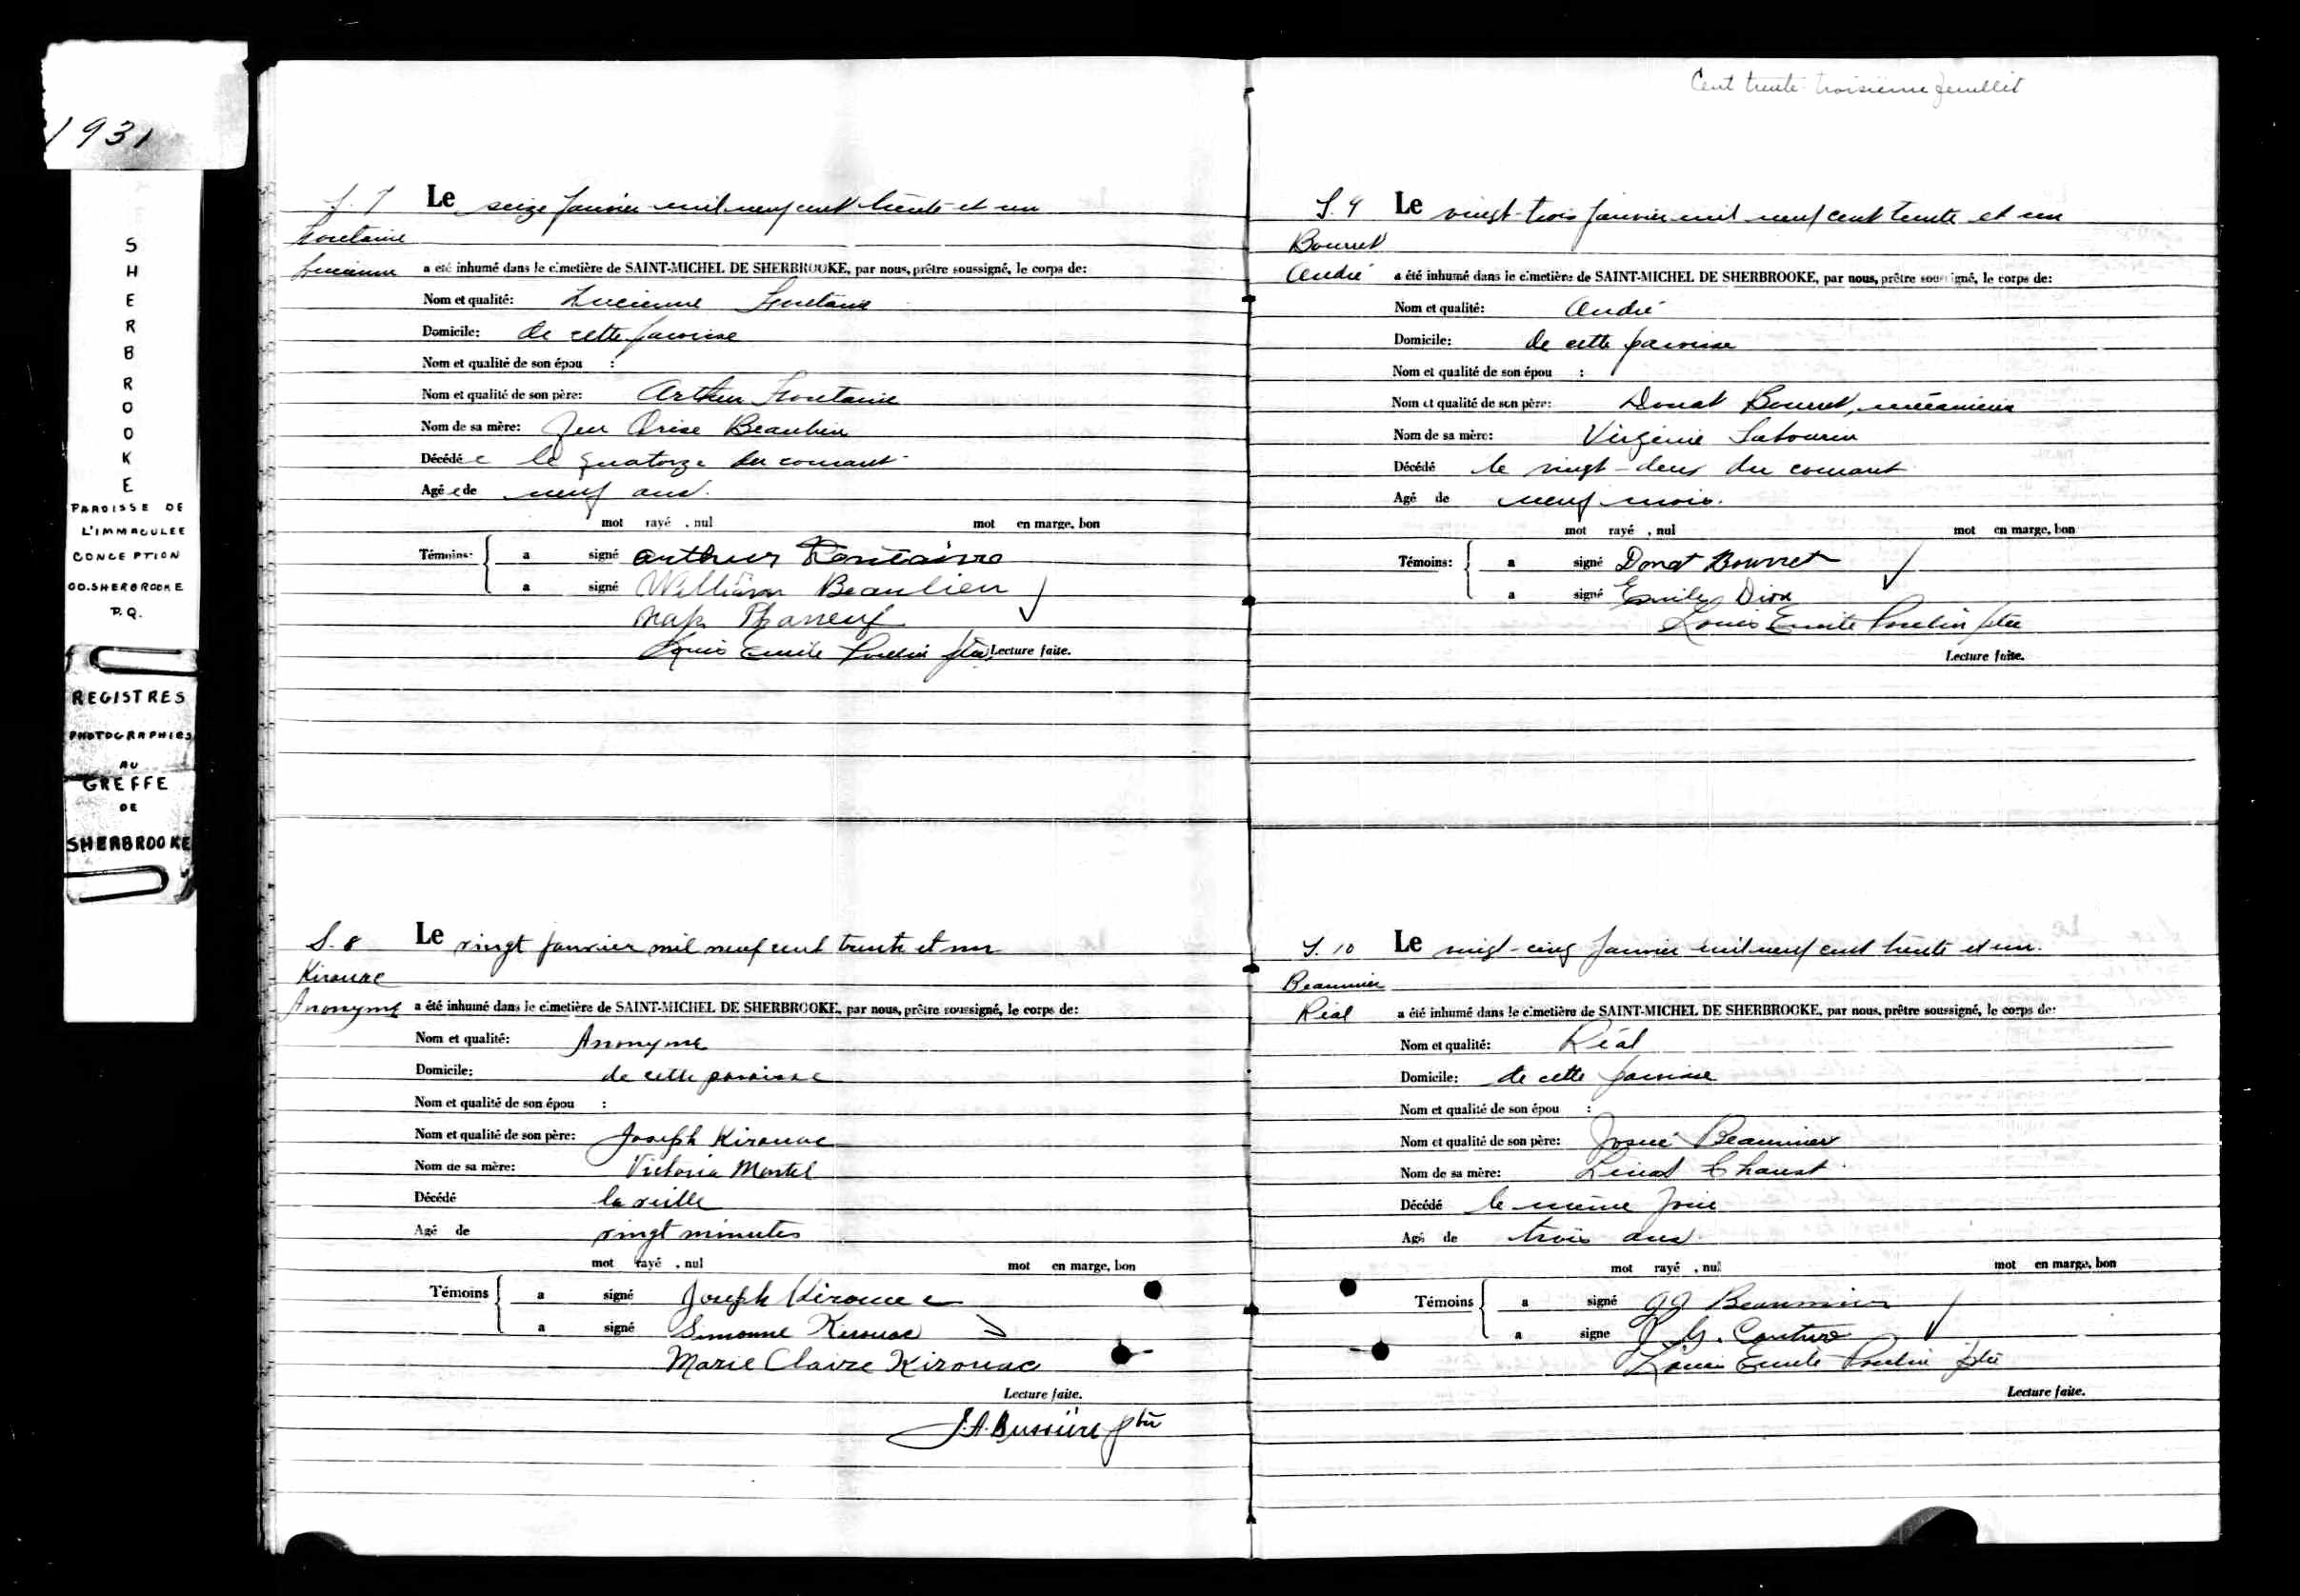 1931
SHERBROOKE
PAROISSE DE
L'IMMACULEE
CONCEPTION
CO. SHERBROOKE
P.Q.
REGISTRES
PHOTOGRAPHIES
AU
GREFFE
DE
SHERBROOKE
S. 7 Le seize janvier mil neuf cent trente et un
Fontaine
Lucienne a été inhumé dans le cimetière de SAINT-MICHEL DE SHERBROOKE, par nous, prêtre soussigné, le corps de:
Nom et qualité: Lucienne Fontaine
Domicile: de cette paroisse
Nom et qualité de son épou :
Nom et qualité de son père: Arthur Fontaine
Nom de sa mère: feu Beaulieu
Décédée le quatorze du courant
Agée de neuf ans.
mot rayé , nul mot en marge, bon
Témoins: a signé Arthur Fontaine
a signé William Beaulieu
Nap. Phaneuf
Louis Emile Poulin ptre Lecture faite.
S. 8 Le vingt janvier mil neuf cent trente et un
Kirouac
Anonyme a été inhumé dans le cimetière de SAINT-MICHEL DE SHERBROOKE, par nous, prêtre soussigné, le corps de:
Nom et qualité: Anonyme
Domicile: de cette paroisse
Nom et qualité de son épou :
Nom et qualité de son père: Joseph Kirouac
Nom de sa mère: Victoria Martel
Décédé la veille
Agé de vingt minutes
mot rayé , nul mot en marge, bon
Témoins a signé Joseph Kirouac
a signé Simonne Kirouac
Marie Claire Kirouac
Lecture faite.
J.A. Bussière ptre
Cent trente-troisième feuillet
S. 9 Le vingt-trois janvier mil neuf cent trente et un
Bourret
André a été inhumé dans le cimetière de SAINT-MICHEL DE SHERBROOKE, par nous, prêtre soussigné, le corps de:
Nom et qualité: André
Domicile: de cette paroisse
Nom et qualité de son épou :
Nom et qualité de son père: Donat Bourret, mécanicien
Nom de sa mère: Virginie Labourin
Décédé le vingt-deux du courant
Agé de neuf mois.
mot rayé , nul mot en marge, bon
Témoins: a signé Donat Bourret
a signé Emile Dion
Louis Emile Poulin ptre
Lecture faite.
S. 10 Le vingt-cinq janvier mil neuf cent trente et un.
Beaumier
Réal a été inhumé dans le cimetière de SAINT-MICHEL DE SHERBROOKE, par nous, prêtre soussigné, le corps de:
Nom et qualité: Réal
Domicile: de cette paroisse
Nom et qualité de son épou :
Nom et qualité de son père: Josué Beaumier
Nom de sa mère:
Décédé le même jour
Agé de trois ans
mot rayé , nul mot en marge, bon
Témoins a signé J J Beaumier
a signé Couture
Louis Emile Poulin ptre
Lecture faite.